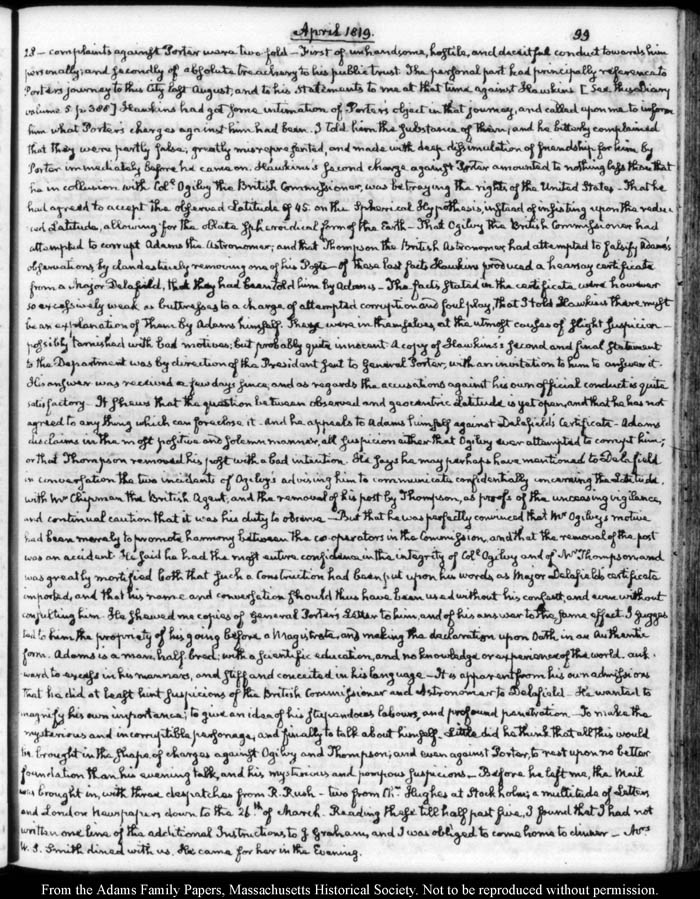 April 1819.
99
28 — complaints against Porter were two fold — First of unhandsome, hostile, and deceitful conduct towards him
personally; and secondly of absolute treachery to his public trust. The personal part had principally reference to
Porter's journey to this City last August, and to his statements to me at that time against Hawkins [See this Diary
volume 5 p. 388] Hawkins had got some intimation of Porter's object in that journey, and called upon me to inform
him what Porter's charges against him had been. I told him the substance of them; and he bitterly complained
that they were partly false, greatly misrepresented, and made with deep dissimulation of friendship for him by
Porter immediately before he came on. Hawkins's second charge against Porter amounted to nothing less than that
he in collusion with Coll. Ogilvy the British Commissioner, was betraying the rights of the United States. That he
had agreed to accept the observed Latitude of 45. on the Spherical Hypothesis, instead of insisting upon the redu-
ced Latitude, allowing for the oblate Spheroidical form of the Earth — That Ogilvy the British Commissioner had
attempted to corrupt Adams the Astronomer; and that Thompson the British Astronomer, had attempted to falsify Adams's
observations, by clandestinely removing one of his Posts — of these last facts Hawkins produced a hearsay certificate
from a Major Delafield, that they had been told him by Adams — The facts stated in the certificate were however
so excessively weak as buttresses to a charge of attempted corruption and foul play, that I told Hawkins there must
be an explanation of them by Adams himself. These were in themselves at the utmost causes of slight suspicion —
possibly tarnished with bad motives; but probably quite innocent. A copy of Hawkins's second and final statement
to the Department was by direction of the President sent to General Porter, with an invitation to him to answer it.
His answer was received a few days since, and as regards the accusations against his own official conduct is quite
satisfactory. It shews that the question between observed and geocentric Latitude is yet open, and that he has not
agreed to any thing which can foreclose it — and he appeals to Adams himself against Delafield's Certificate — Adams
disclaims in the most positive and solemn manner, all suspicion either that Ogilvy ever attempted to corrupt him;
or that Thompson removed his post with a bad intention. He says he may perhaps have mentioned to Delafield
in conversation the two incidents of Ogilvy's advising him to communicate confidentially concerning the Latitude,
with Mr Chipman the British Agent, and the removal of his post by Thompson, as proofs of the unceasing vigilance,
and continual caution that it was his duty to observe — But that he was perfectly convinced that Mr Ogilvy's motive
had been merely to promote harmony between the co-operators in the Commission, and that the removal of the post
was an accident. He said he had the most entire confidence in the integrity of Coll. Ogilvy and of Mr Thompson and
was greatly mortified both that such a Construction had been put upon his words as Major Delafield's certificate
imported, and that his name and conversation should thus have been used without his consent, and even without
consulting him. He shewed me copies of General Porter's Letter to him, and of his answer to the same effect. I sugges-
ted to him the propriety of his going before a Magistrate, and making the declaration upon Oath, in an Authentic
form. Adams is a man, half bred; with a scientific education, and no knowledge or experience of the world. awk-
ward to excess in his manners, and stiff and conceited in his language — It is apparent from his own admissions
that he did at least hint suspicions of the British Commissioner and Astronomer to Delafield — He wanted to
magnify his own importance; to give an idea of his stupendous labours, and profound penetration — To make the
mysterious and incorruptible personage, and finally to talk about himself. Little did he think that all this would
be brought in the shape of charges against Ogilvy and Thompson; and even against Porter, to rest upon no better
foundation than his evening talk, and his mysterious and pompous suspicions — Before he left me, the Mail
was brought in, with three despatches from R. Rush — two from Mr. Hughes at Stockholm; a multitude of Letters
and London Newspapers down to the 26th of March. Reading these till half past five, I found that I had not
written one line of the additional Instructions to J Graham, and I was obliged to come home to dinner — Mrs
W. S. Smith dined with us. He came for her in the Evening.
From the Adams Family Papers, Massachusetts Historical Society. Not to be reproduced without permission.